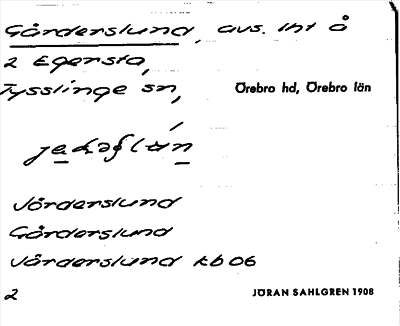 Gårderslund, avs. lht å
2 Egersta,
Tysslinge sn, Örebro hd, Örebro län
Jörderslund
Gårderslund
Jårderslund kb 06
2 JÖRAN SAHLGREN 1908